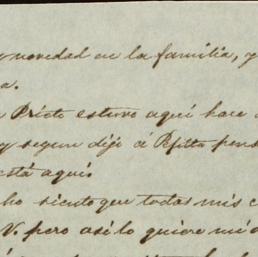 novedad en la familia, y
a.
Prieto estuvo aquí hace
y segun dijo á Pepito pens
está aquí.
ho siento que todas mis c
V. pero asi lo quiere mi d